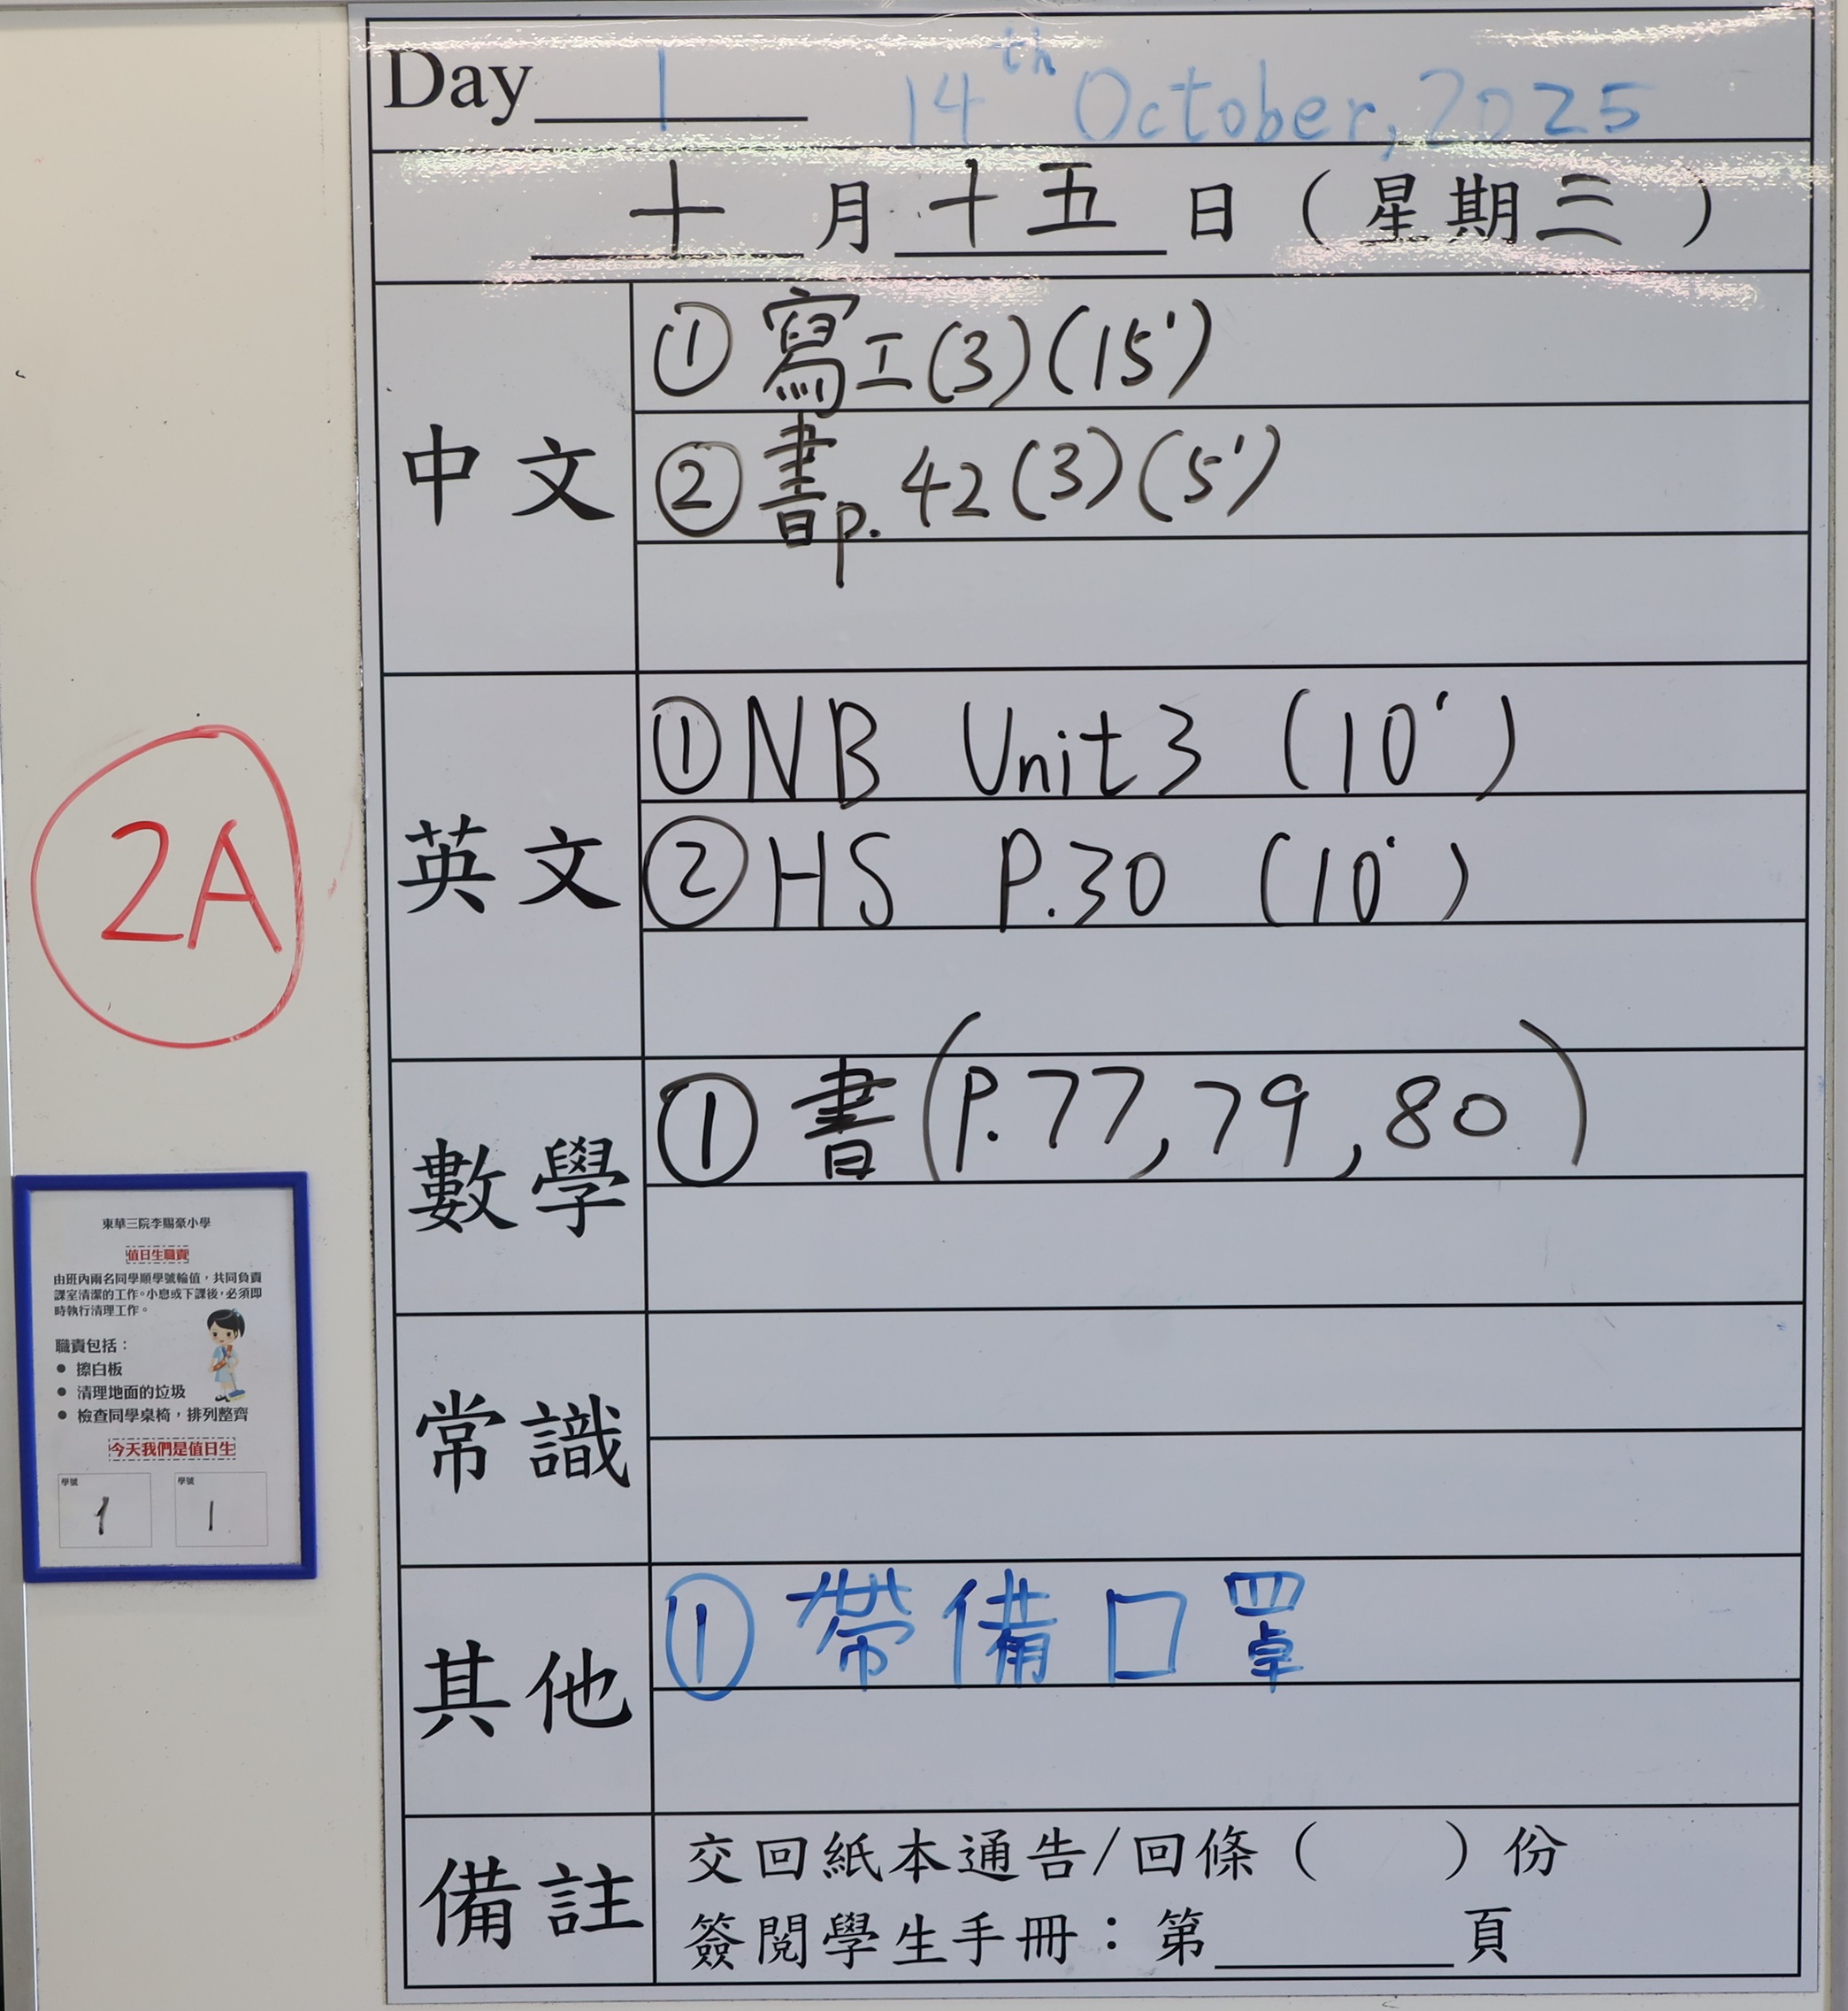 Day 1 14th October, 2025
十月十五日(星期三)
中文
①寫工(3)(15')
②書p.42(3)(5')
英文
①NB Unit3 (10')
②HS P.30 (10')
數學
①書(P.77,79,80)
常識
其他
①帶備口罩
備註
交回紙本通告/回條( )份
簽閱學生手冊:第______頁
2A
東華三院李賜豪小學
值日生職責
由班內兩名同學順學號輪值,共同負責
課室清潔的工作。小息或下課後,必須即
時執行清理工作。
職責包括:
● 擦白板
● 清理地面的垃圾
● 檢查同學桌椅,排列整齊
今天我們是值日生
學號 學號
1 1